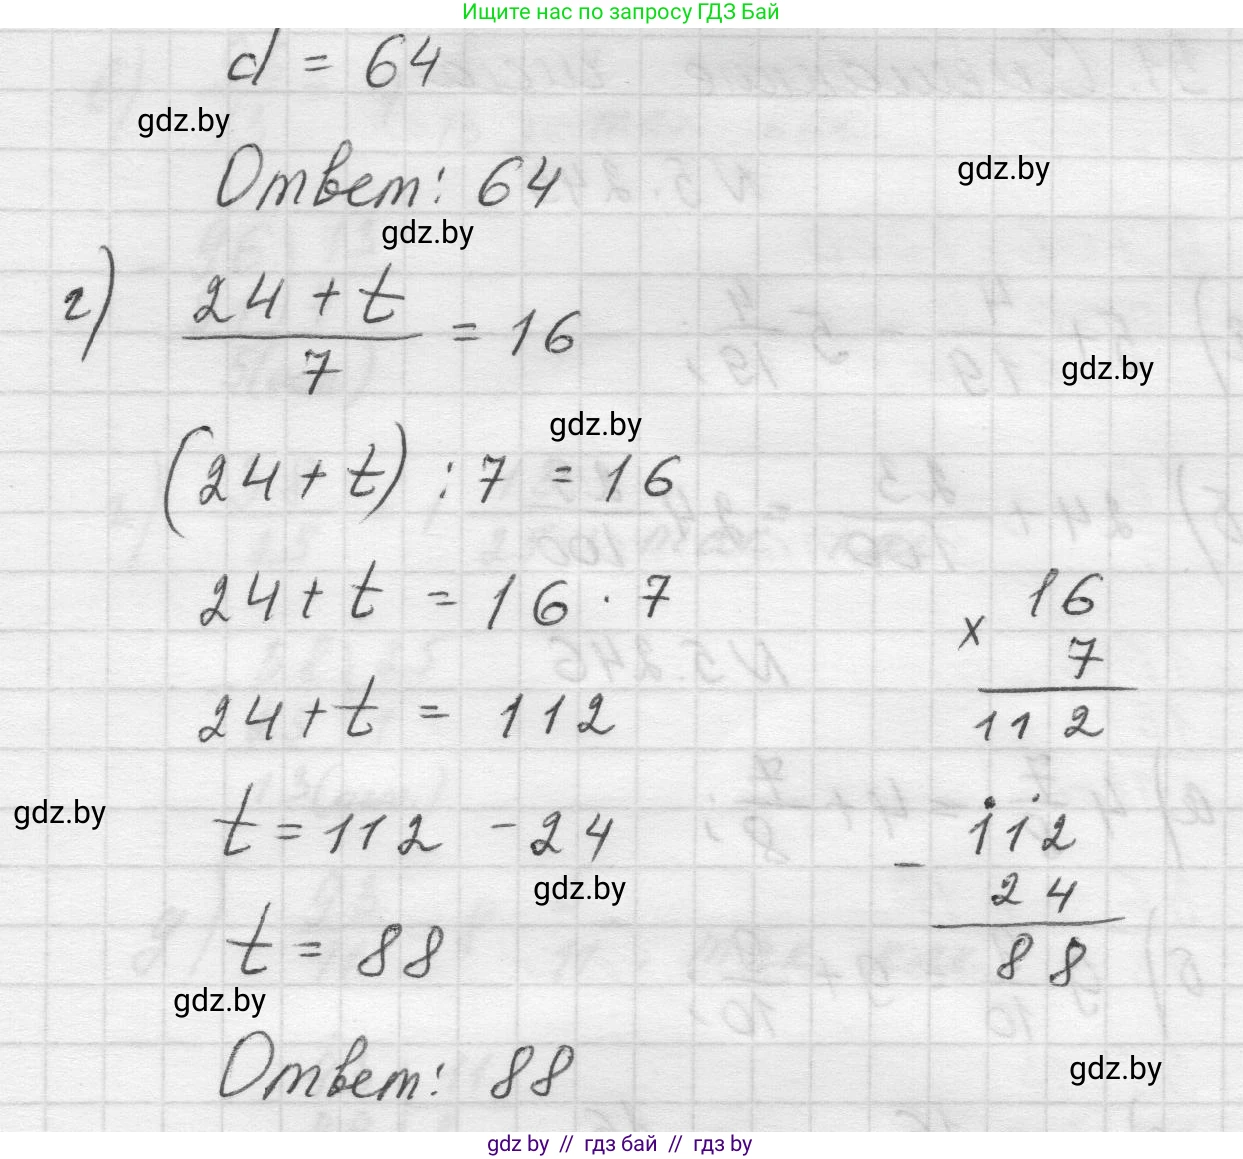 Ищите нас по запросу ГДЗ Бай
d = 64
gdz.by
Ответ: 64
gdz.by
gdz.by
г) (24 + t)/7 = 16
gdz.by
gdz.by
(24 + t) : 7 = 16
24 + t = 16 · 7
16
× 7
112
24 + t = 112
gdz.by
t = 112 - 24
112
- 24
88
gdz.by
t = 88
gdz.by
Ответ: 88
gdz.by
gdz by // гдз бай // гдз by